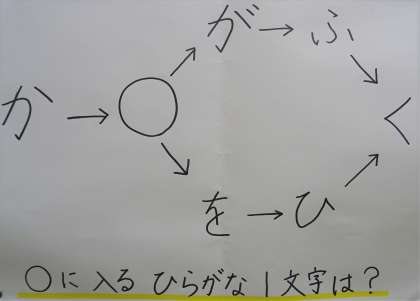 か → ○
が → ふ
を → ひ
く
○に入るひらがな1文字は?